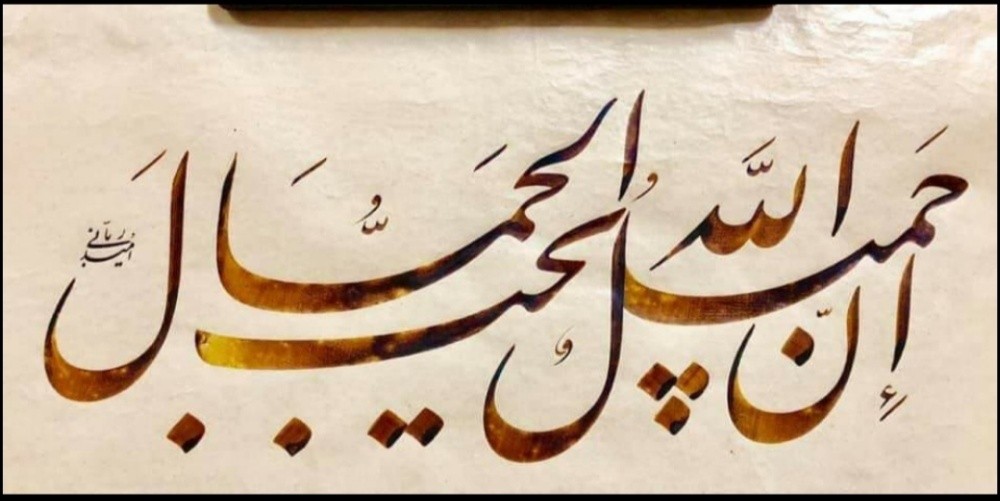 إنّ اللّه جميلٌ يحبُّ الجمالَ
امید ربّانی